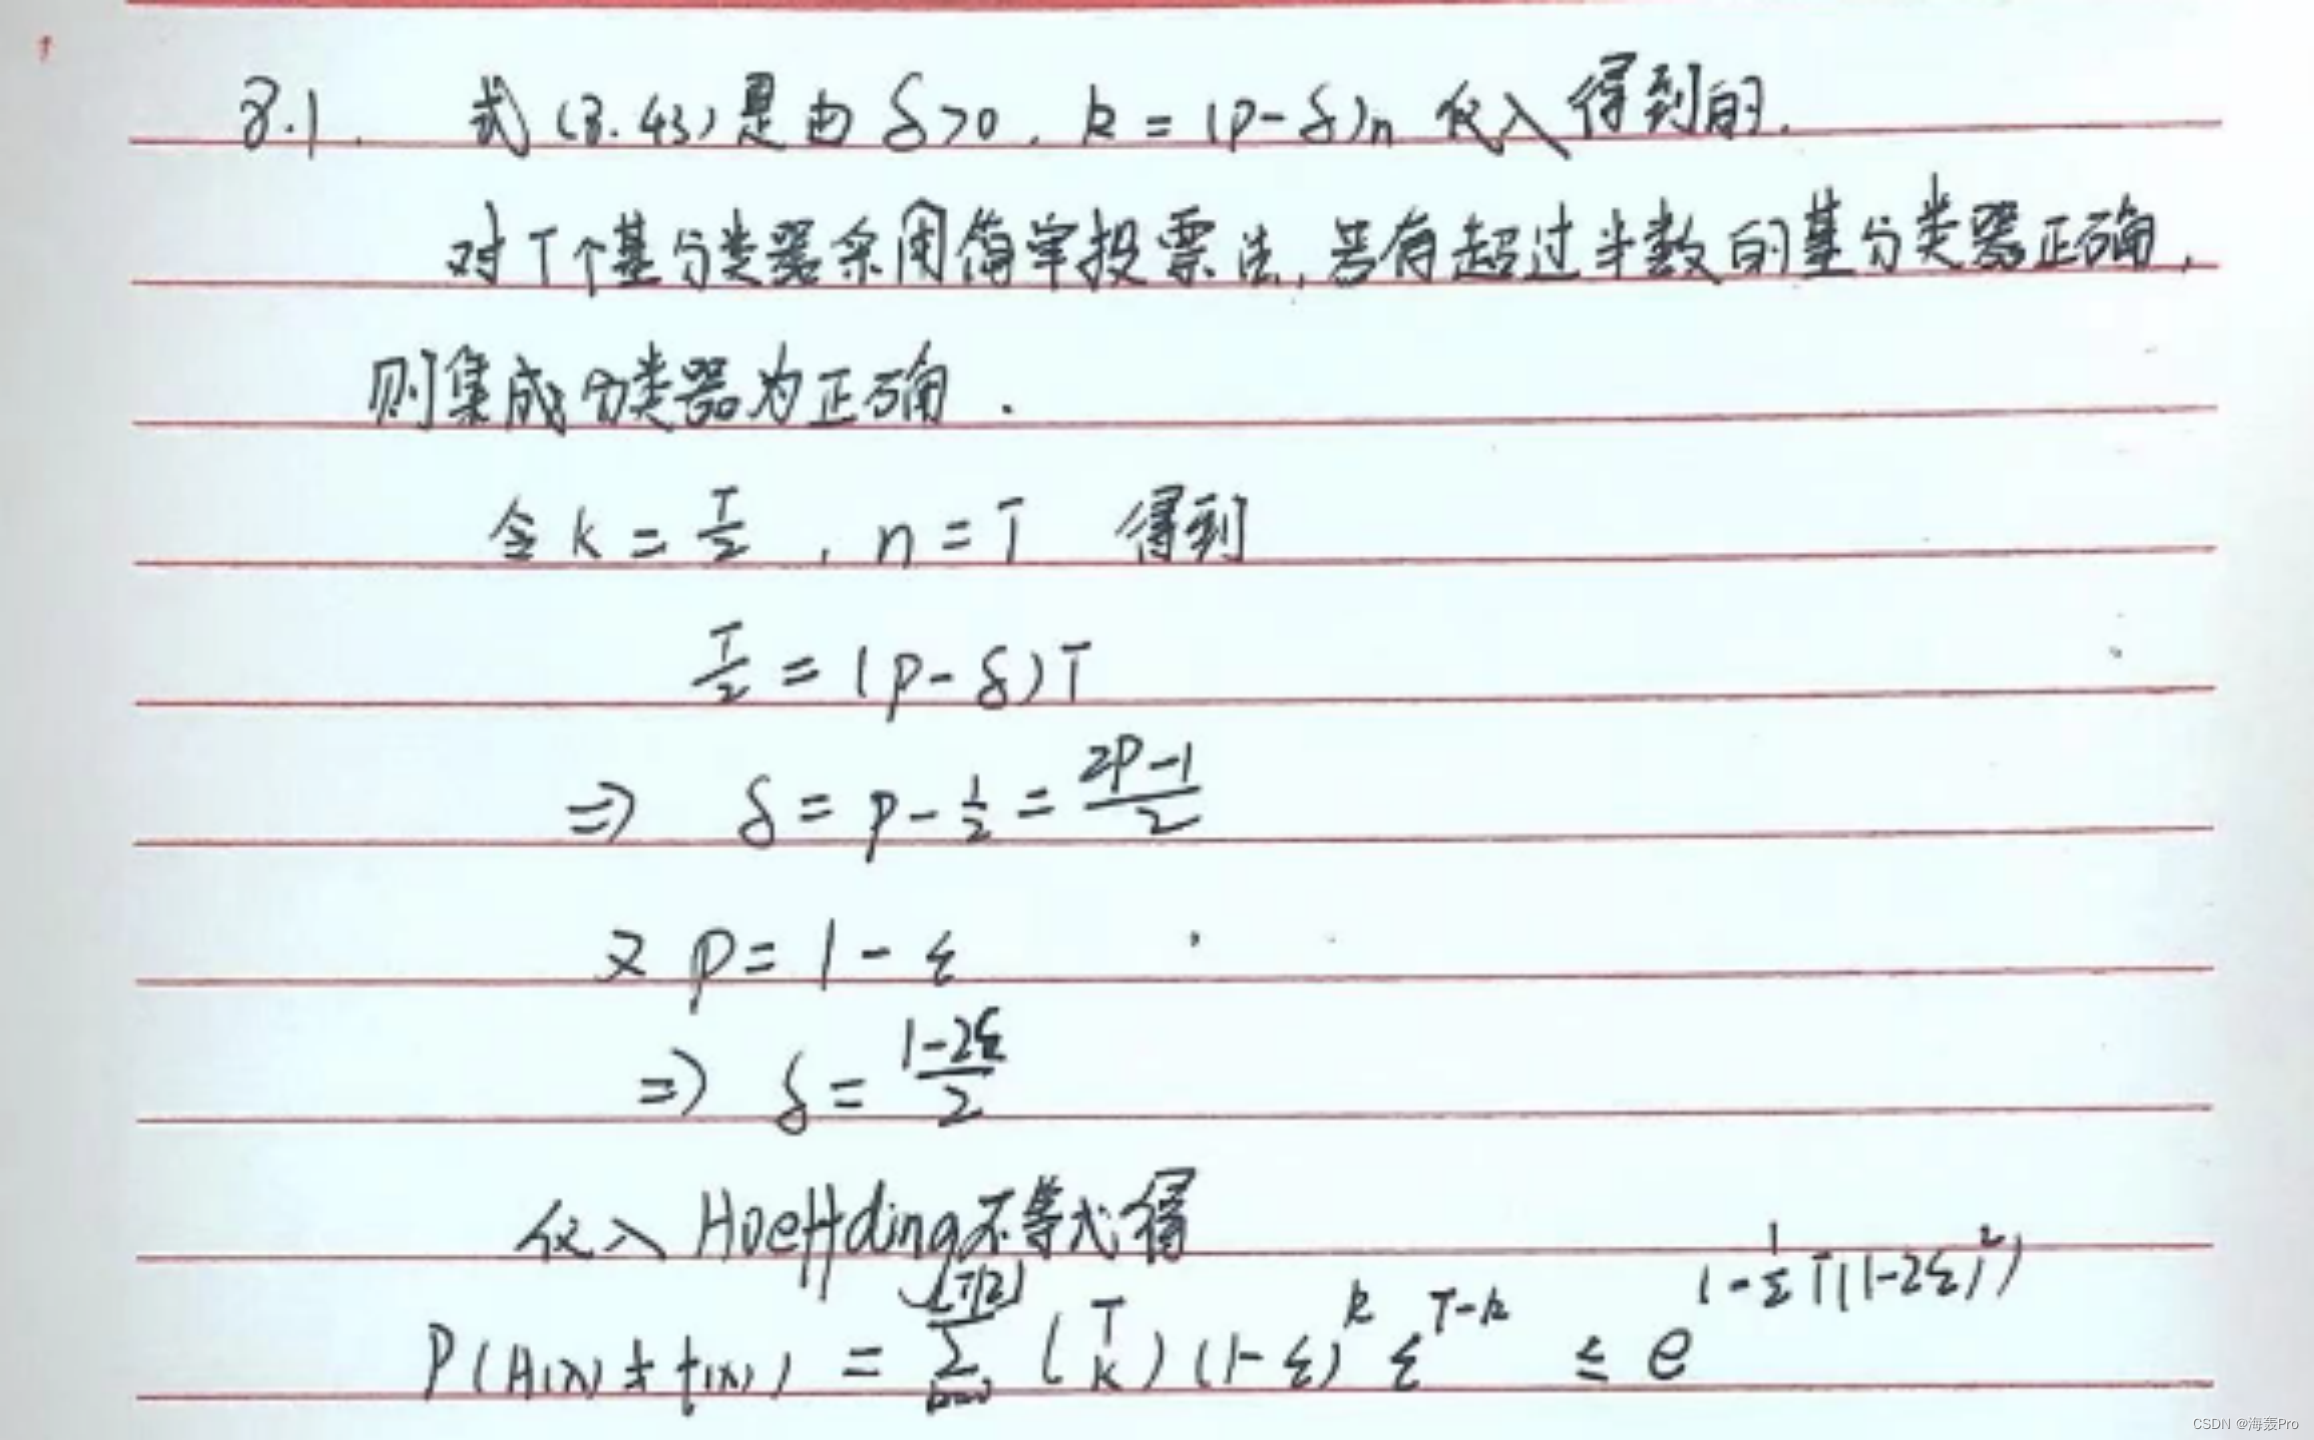 8.1. 式(8.43)是由 δ>0. k=(p-δ)n 代入得到的.
对T个基分类器采用简单投票法,若有超过半数的基分类器正确,
则集成分类器为正确.
令 k = T/2 , n = T 得到
T/2 = (p-δ)T
=> δ = p - 1/2 = (2p-1)/2
又 p = 1 - ε
=> δ = (1-2ε)/2
代入 Hoeffding不等式得
P(H(x)≠f(x)) = ∑_{k=0}^{⌊T/2⌋} (T k) (1-ε)^k ε^{T-k} ≤ e^{(-1/2 T(1-2ε)^2)}
CSDN @海轰Pro